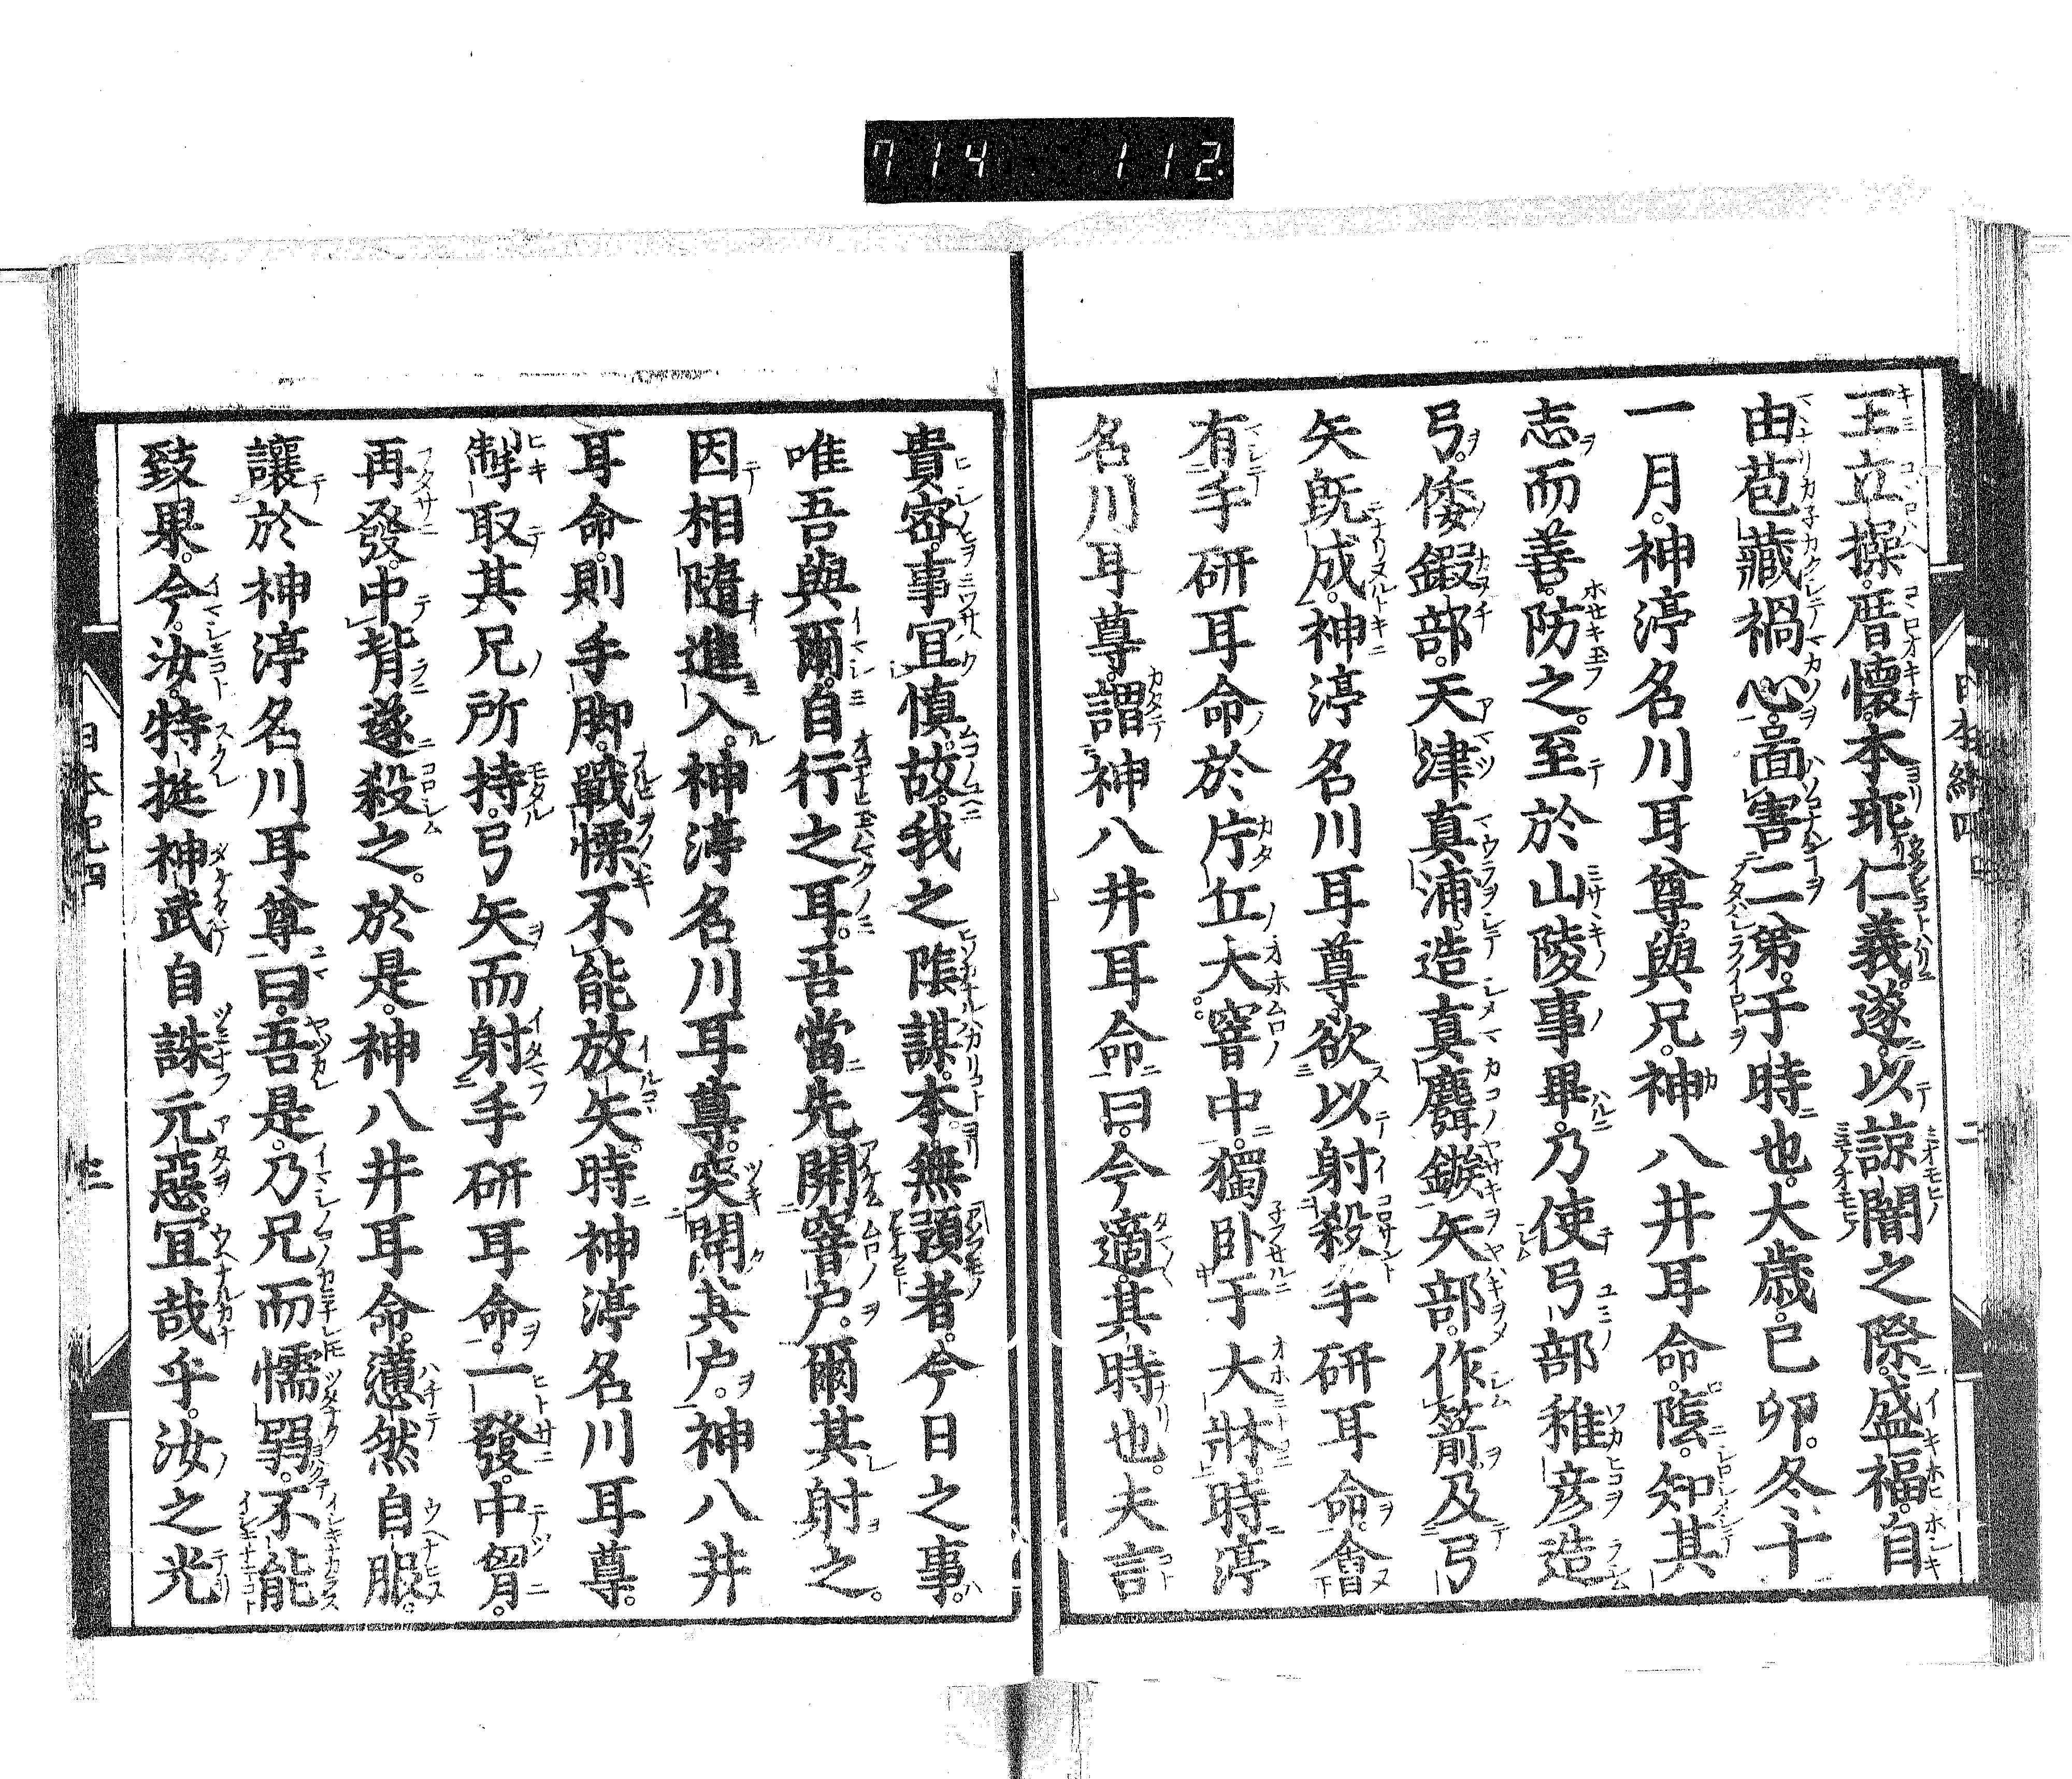 714 112.
王立操。厝懷。本乖仁義。遂以諒闇之際。盛福自
由苞藏禍心。啚害二弟。于時也。大歳己卯。冬十
一月。神渟名川耳尊。與兄。神八井耳命。陰知其
志而善防之。至於山陵事畢。乃使弓部稚彦造
弓。倭鍜部。天津真浦造真麛鏃。矢部。作箭。及弓
矢既成。神渟名川耳尊。欲以射殺手研耳命。會
有手研耳命於片丘大窨中。獨臥于大牀。時渟
名川耳尊。謂神八井耳命曰。今適其時也。夫言
貴密。事宜慎。故我之陰謀。本無預者。今日之事。
唯吾與爾。自行之耳。吾當先開窨戸。爾其射之。
因相隨進入。神渟名川耳尊。突開其戸。神八井
耳命。則手脚戰慄不能放矢。時神渟名川耳尊。
掣取其兄所持。弓矢而射手研耳命。一發。中胷。
再發。中背遂殺之。於是。神八井耳命。懣然自服。
讓於神渟名川耳尊曰。吾是。乃兄而懦弱。不能
致果。今。汝。特挺神武自誅元惡。宜哉乎。汝之光
日本紀四
二
日本紀四
三